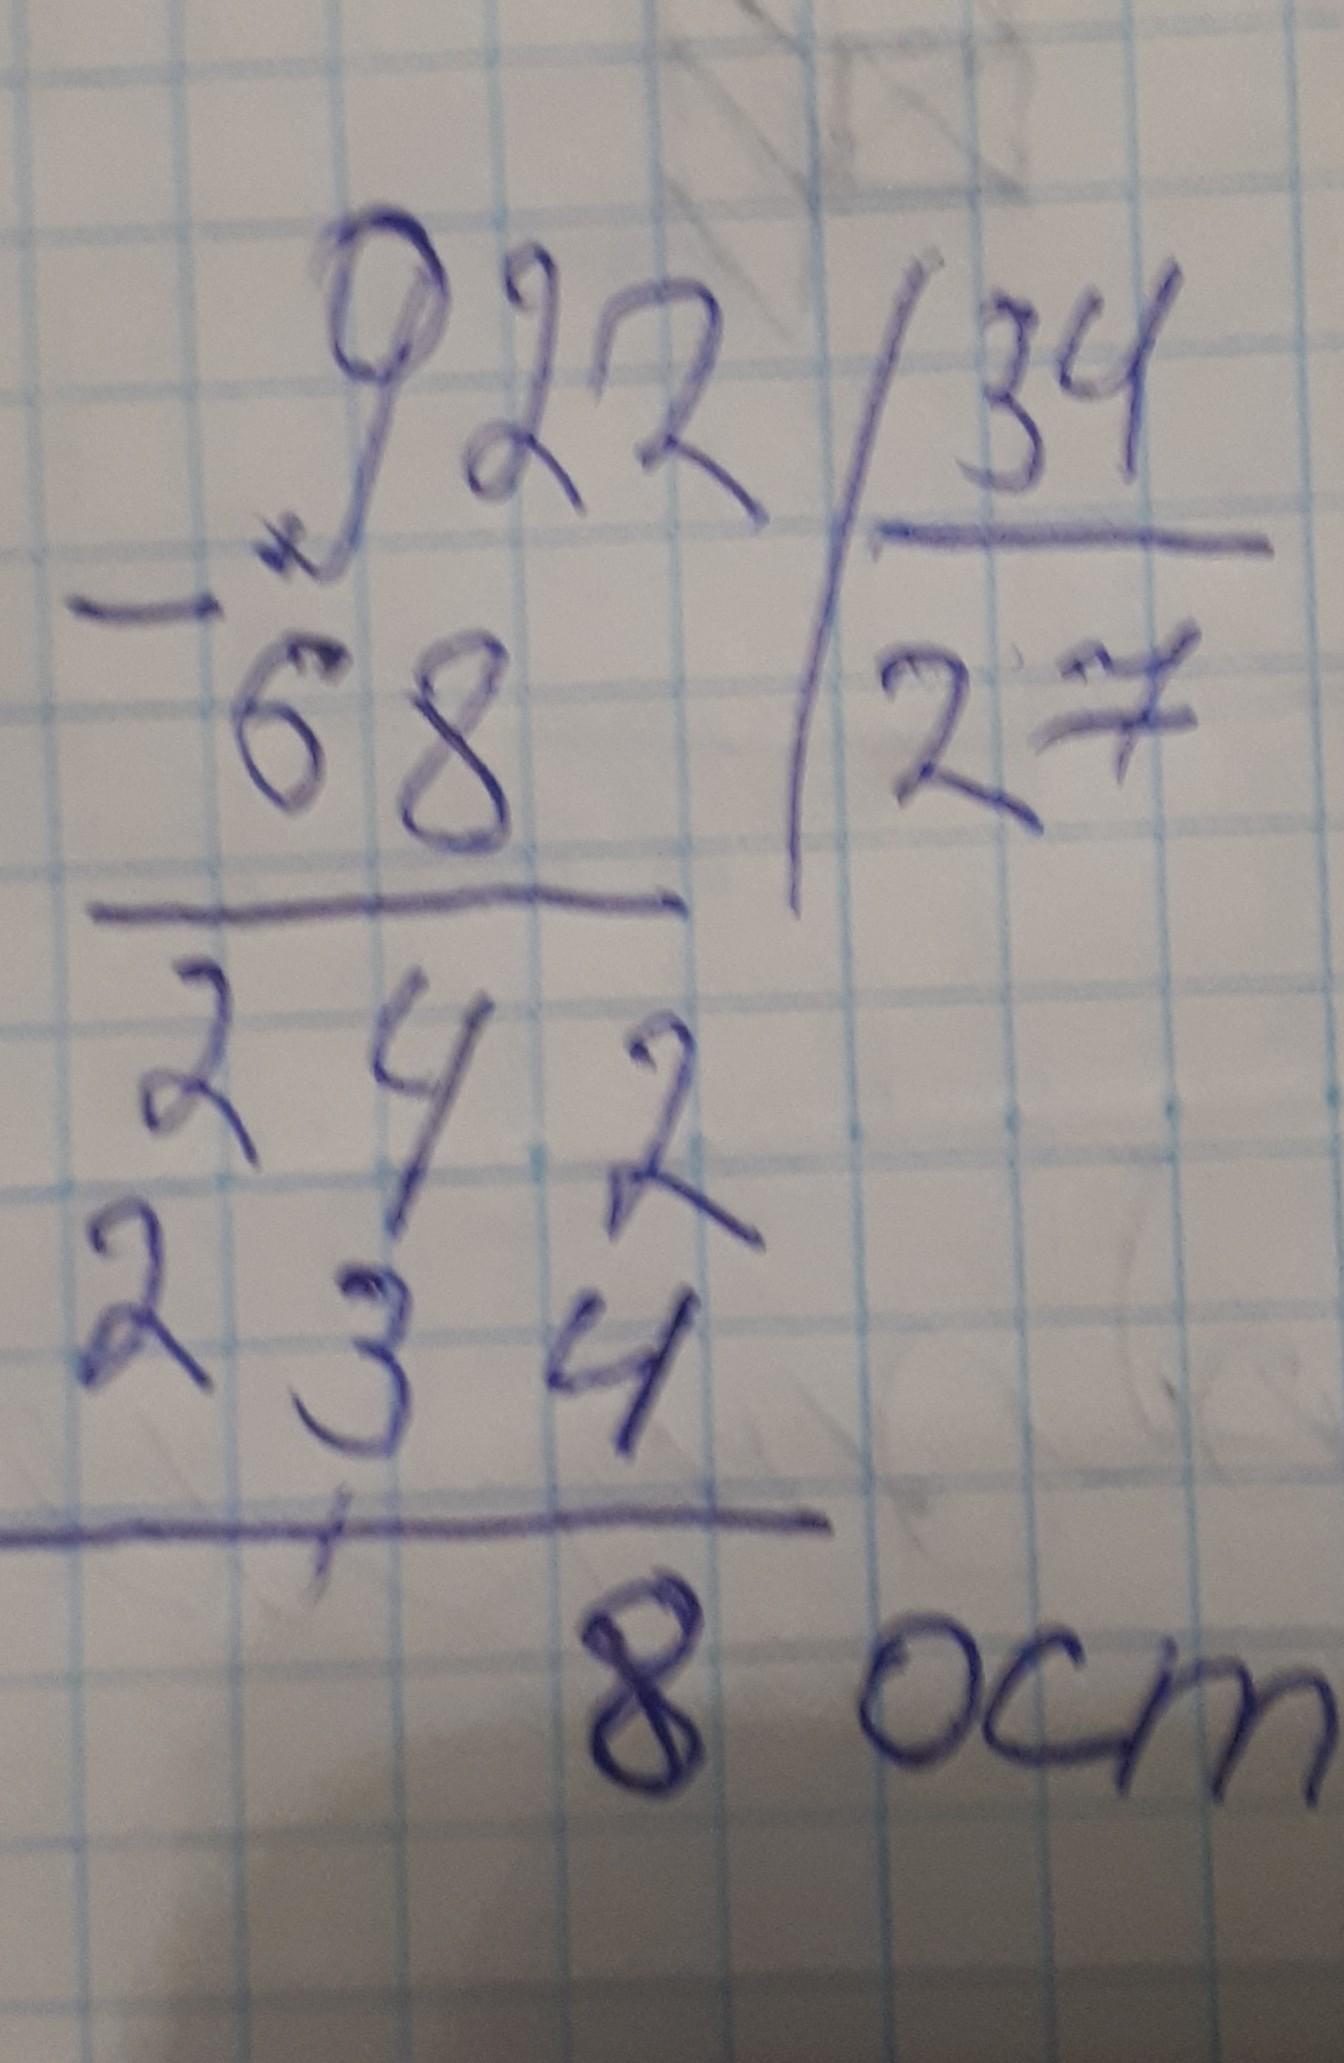 922 34
- 68 27
242
234
8 ост